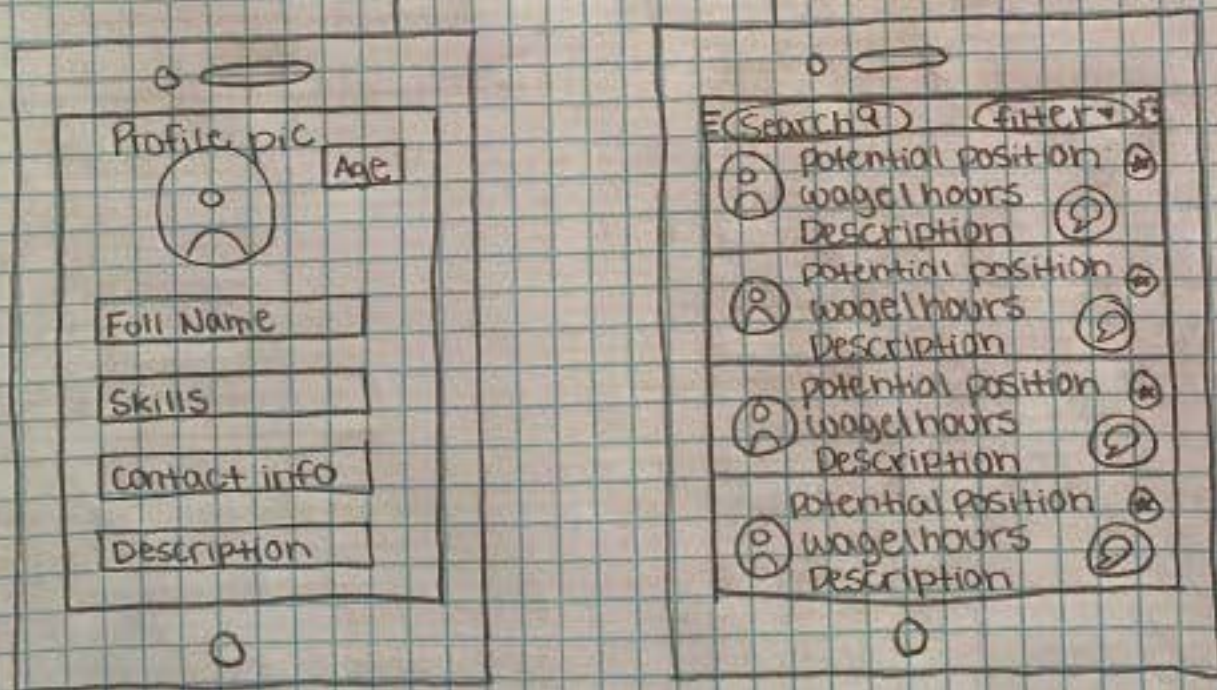 Profile pic
Age
Full Name
Skills
Contact info
Description
Search
filter
potential position
wage/hours
Description
potential position
wage/hours
Description
potential position
wage/hours
Description
potential position
wage/hours
Description